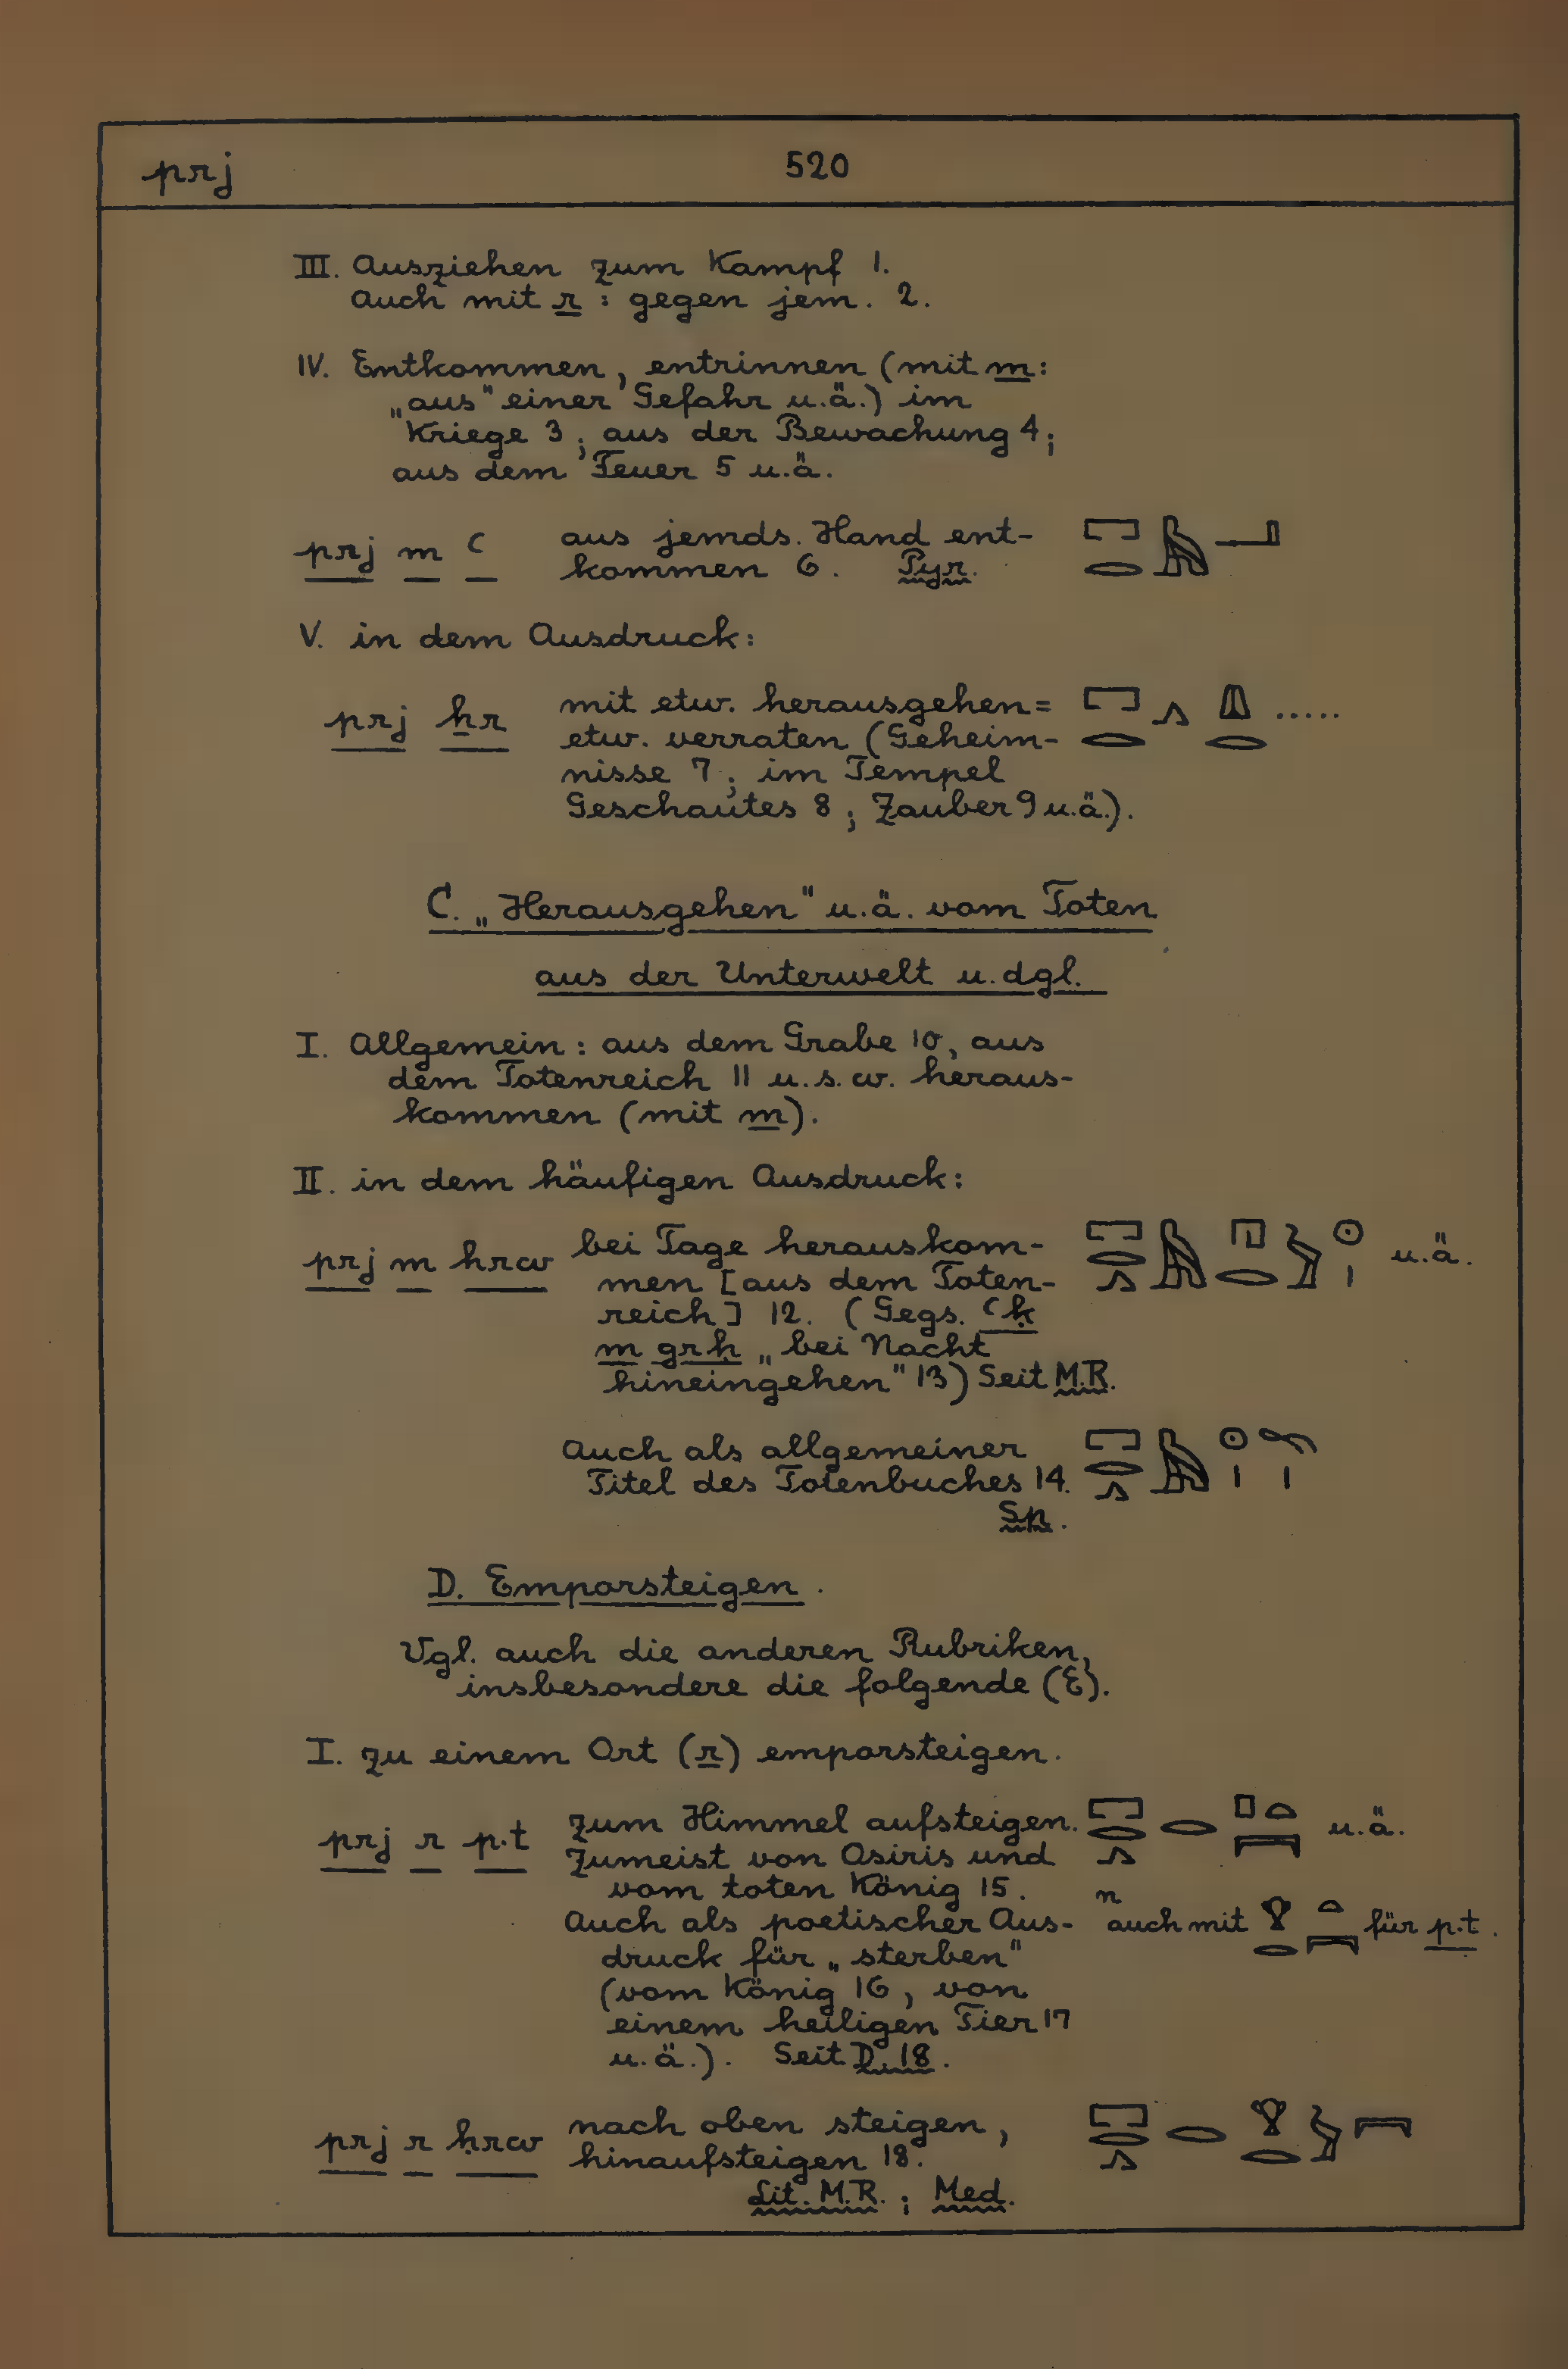 prj 520
III. Ausziehen zum Kampf 1.
auch mit r : gegen jem. 2.
IV. Entkommen, entrinnen (mit m:
„aus" einer Gefahr u.ä.) im
Kriege 3; aus der Bewachung 4;
aus dem Feuer 5 u.ä.
prj m ꜥ aus jemds. Hand ent- 𓉐𓂋𓅓𓂝
kommen 6. Pyr.
V. in dem Ausdruck:
prj ẖr mit etw. herausgehen= 𓉐𓂋𓂻𓌨𓂋 .....
etw. verraten (Geheim-
nisse 7; im Tempel
Geschautes 8; Zauber 9 u.ä.).
C. „Herausgehen" u.ä. vom Toten
aus der Unterwelt u. dgl.
I. Allgemein: aus dem Grabe 10, aus
dem Totenreich 11 u.s.w. heraus-
kommen (mit m).
II. in dem häufigen Ausdruck:
prj m hrw bei Tage herauskom- 𓉐𓂋𓂻𓅓𓉔𓂋𓅱𓇳𓏤 u.ä.
men [aus dem Toten-
reich] 12. (Gegs. ꜥḳ
m grḥ „bei Nacht
hineingehen" 13) Seit M.R.
Auch als allgemeiner 𓉐𓂋𓂻𓅓𓇳𓏤𓏤
Titel des Totenbuches 14.
Sp.
D. Emporsteigen.
Vgl. auch die anderen Rubriken,
insbesondere die folgende (E).
I. zu einem Ort (r) emporsteigen.
prj r p.t zum Himmel aufsteigen. 𓉐𓂋𓂻𓂋𓊪𓏏𓇯 u.ä.
Zumeist von Osiris und
vom toten König 15.
Auch als poetischer Aus- n auch mit 𓁷𓂋𓏏𓇯 für p.t.
druck für „sterben"
(vom König 16, von
einem heiligen Tier 17
u.ä.). Seit D. 18.
prj r ḥrw nach oben steigen, 𓉐𓂋𓂻𓂋𓁷𓂋𓅱𓇯
hinaufsteigen 18.
Lit. M.R.; Med.